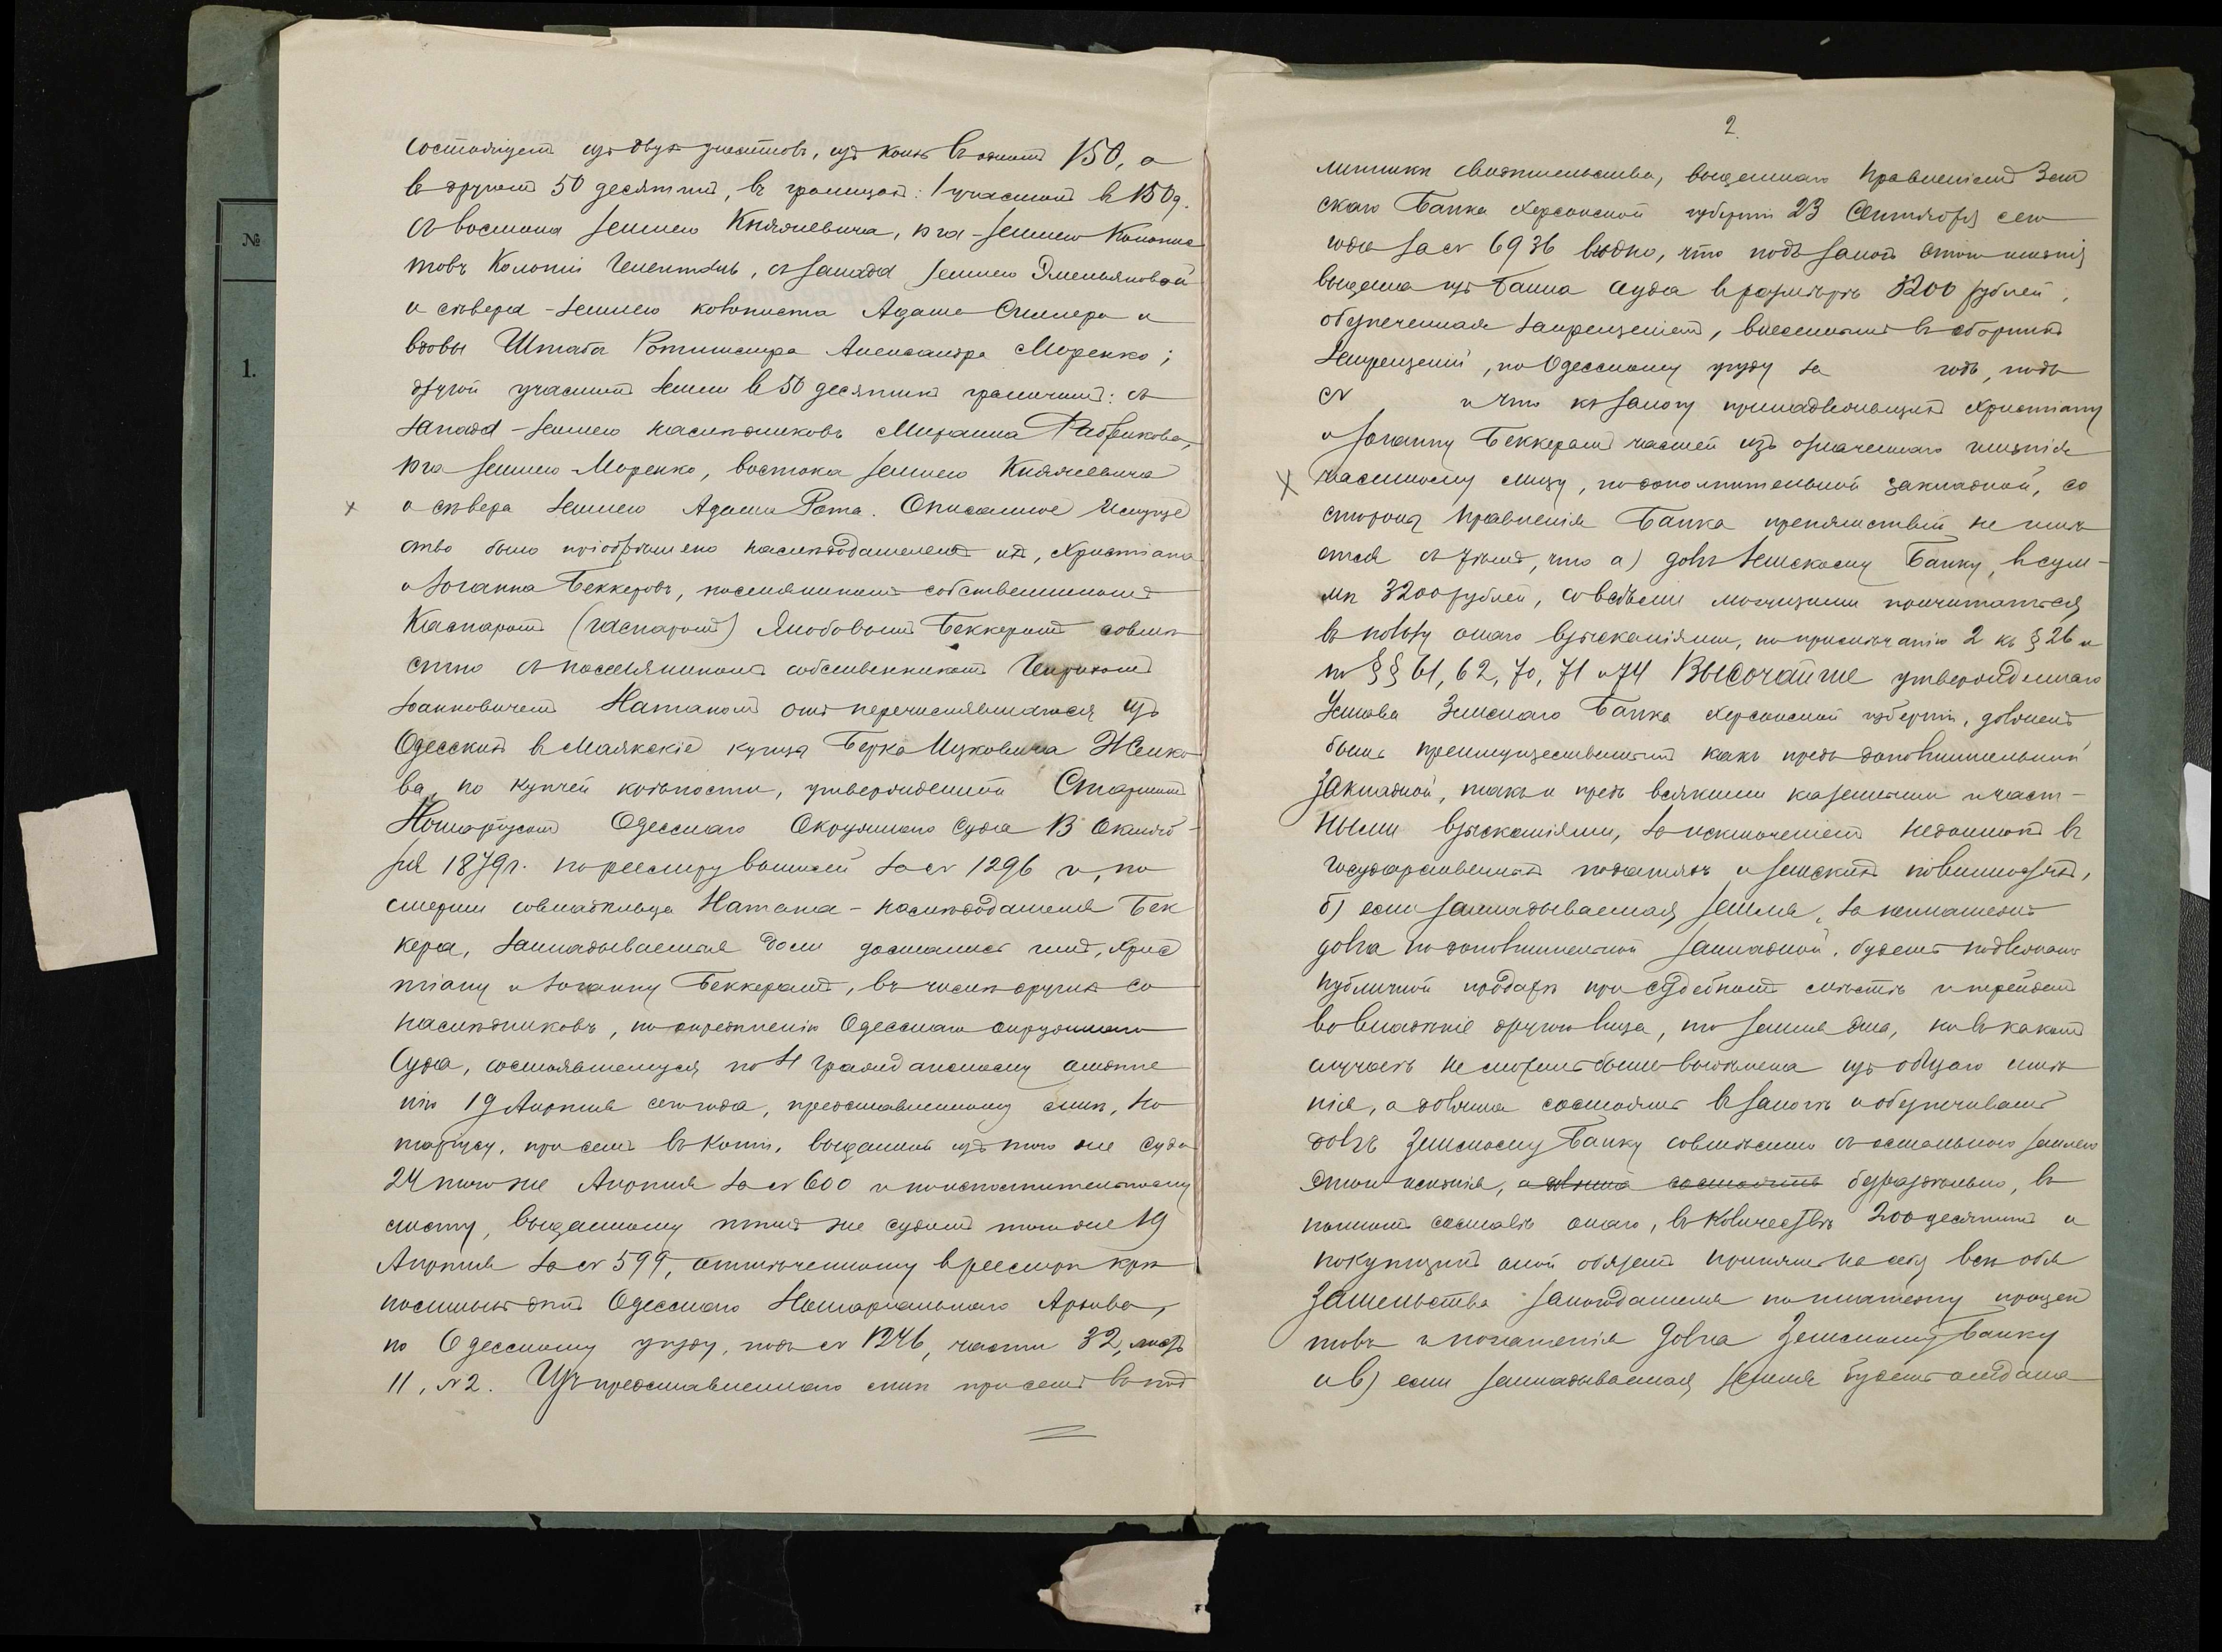 №
1.
состоящемъ изъ двухъ участковъ, изъ коихъ въ одномъ 150, а
въ другомъ 50 десятинъ, въ границахъ: 1 участокъ въ 150 д.
съ востока землею Княжевича, юга - землею Колонис
товъ Колоніи Гелентали, съ запада землею Эмельяновой
и сѣвера - землею колониста Адама и
вдовы Штабсъ Ротмистра Александра Моренко;
другой участокъ земли въ 50 десятинъ граничитъ: съ
запада - землею наслѣдниковъ Михаила
юга землею Моренко, востока землею Княжевича
и сѣвера землею Адама Рота. Описанное Имуще
ство было пріобрѣтено наслѣдодателемъ ихъ, Христіана
и Іоганна Беккеровъ, поселяниномъ собственникомъ
Каспаромъ (Гаспаромъ) Якобовымъ Беккеромъ совмѣ
стно съ поселяниномъ собственникомъ Генрихомъ
Іоанновичемъ Натаномъ отъ перечислявшагося изъ
Одесскихъ въ Маякскіе купца Берка Ицковича
ва, по купчей крѣпости, утвержденной Старшимъ
Нотаріусомъ Одесскаго Окружнаго Суда 13 Октяб-
ря 1879 г. по реестру за № 1296 и, по
смерти совладѣльца Натана - наслѣдодателя Бек
кера, закладываемыя доли достались имъ, Хрис
тіану и Іоганну Беккерамъ, въ числѣ другихъ со
наслѣдниковъ, по опредѣленію Одесскаго Окружнаго
Суда, состоявшемуся по 4 гражданскому отдѣле
нію 19 Апрѣля сего года, представленному мнѣ, Но
таріусу, при семъ въ копіи, выданной изъ того же Суда
24 того же Апрѣля за № 600 и по исполнительному
листу, выданному тѣмъ же судомъ того же 19
Апрѣля за № 599, отмѣченному въ реестрѣ крѣ
постныхъ дѣлъ Одесскаго Нотаріальнаго Архива,
по Одесскому уѣзду, подъ № 1246, части 32, листъ
11, № 2. Изъ представленнаго мнѣ при семъ въ под
2.
линникѣ свидѣтельства, выданнаго Правленіемъ Зем
скаго Банка Херсонской губерніи 23 Сентября сего
года за № 6936 видно, что подъ залогъ этого имѣнія
выдана изъ Банка ссуда въ размѣрѣ 3200 рублей,
обезпеченная запрещеніемъ, внесеннымъ въ сборникъ
запрещеній, по Одесскому уѣзду за годъ, подъ
№ и что къ залогу принадлежащихъ Христіану
и Іоганну Беккерамъ частей изъ означеннаго имѣнія
частному лицу, по дополнительной закладной, со
стороны Правленія Банка препятствій не имѣ
ется съ тѣмъ, что а) долгъ Земскому Банку, въ сум-
мѣ 3200 рублей, со всѣми могущими почитаться
въ пользу онаго взысканіями, по примѣчанію 2 къ § 26 и
по §§ 61, 62, 70, 71 и 74 Высочайше утвержденнаго
Устава Земскаго Банка Херсонской губерніи, долженъ
быть преимущественнымъ какъ предъ дополнительной
закладной, такъ и предъ всякими казенными и част-
ными взысканіями, за исключеніемъ недоимокъ въ
государственныхъ податяхъ и земскихъ повинностяхъ,
б) если закладываемая земля, за неплатежъ
долга по дополнительной закладной, будетъ подлежать
публичной продажѣ при судебномъ мѣстѣ и перейдетъ
во владѣніе другого лица, то земля эта, ни въ какомъ
случаѣ не можетъ быть выдѣлена изъ общаго имѣ
нія, а должна состоять въ залогѣ и обезпечивать
долгъ Земскому Банку совмѣстно съ остальною землею
этого имѣнія, а должна состоять безраздѣльно, въ
полномъ составѣ онаго, въ количествѣ 200 десятинъ и
покупщикъ оной обязанъ принять на себя всѣ обя
зательства залогодателя по платежу процен
товъ и погашенія долга Земскому Банку
и в) если закладываемая земля будетъ отдана